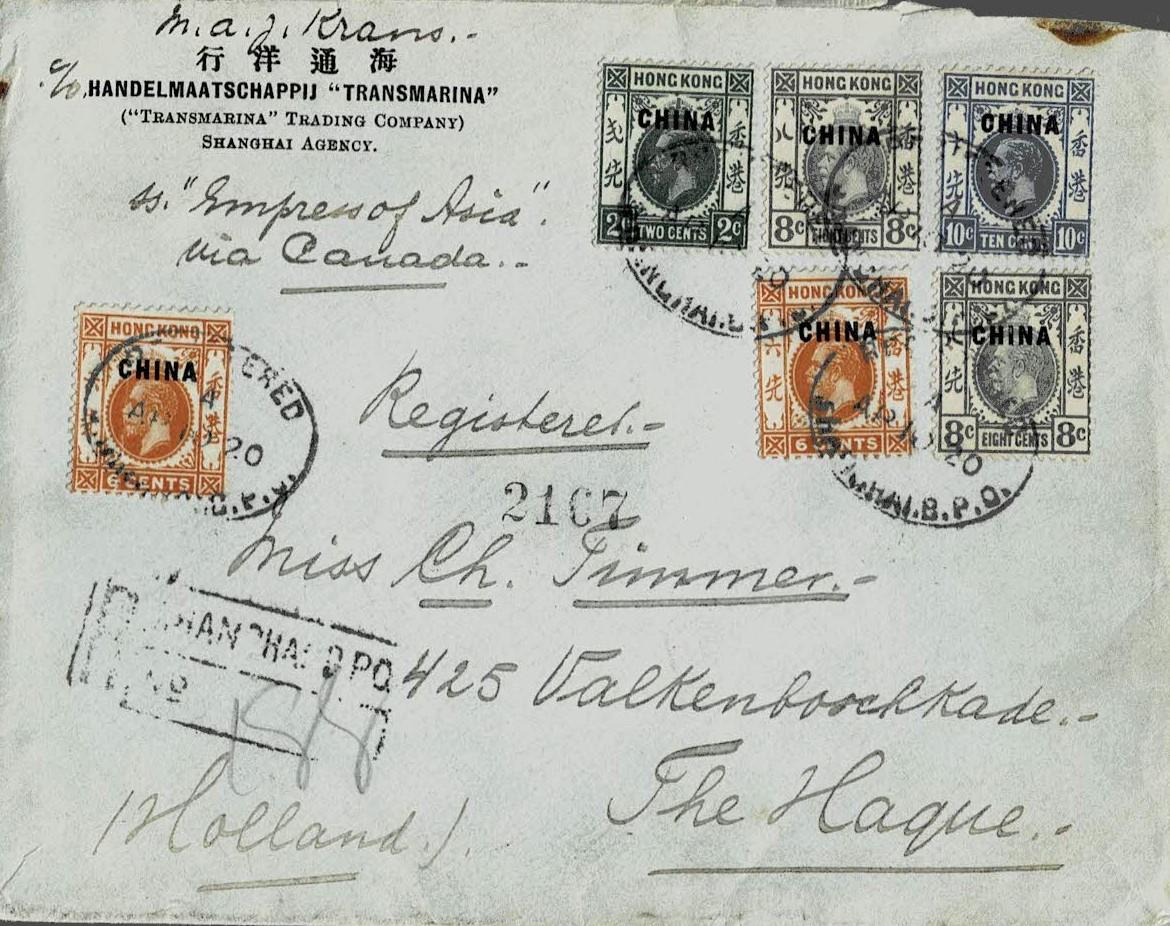 M. A. J. Krans.-
行洋通海
c/o HANDELMAATSCHAPPIJ "TRANSMARINA"
("TRANSMARINA" TRADING COMPANY)
SHANGHAI AGENCY.
ss. "Empress of Asia".
via Canada.-
HONG KONG
CHINA
弍先
香港
2c TWO CENTS 2c
HONG KONG
CHINA
八先
香港
8c EIGHT CENTS 8c
HONG KONG
CHINA
十先
香港
10c TEN CENTS 10c
HONG KONG
CHINA
六先
香港
6 CENTS
HONG KONG
CHINA
八先
香港
8c EIGHT CENTS 8c
A
AP 20
SHANGHAI.B.P.O.
HONG KONG
CHINA
香港
6 CENTS
REGISTERED
A
AP 20
B.P.O.
Registered.-
2167
Miss Ch. Timmer.-
R SHANGHAI B PO
No
425 Valkenboschkade.-
The Hague.-
(Holland.).